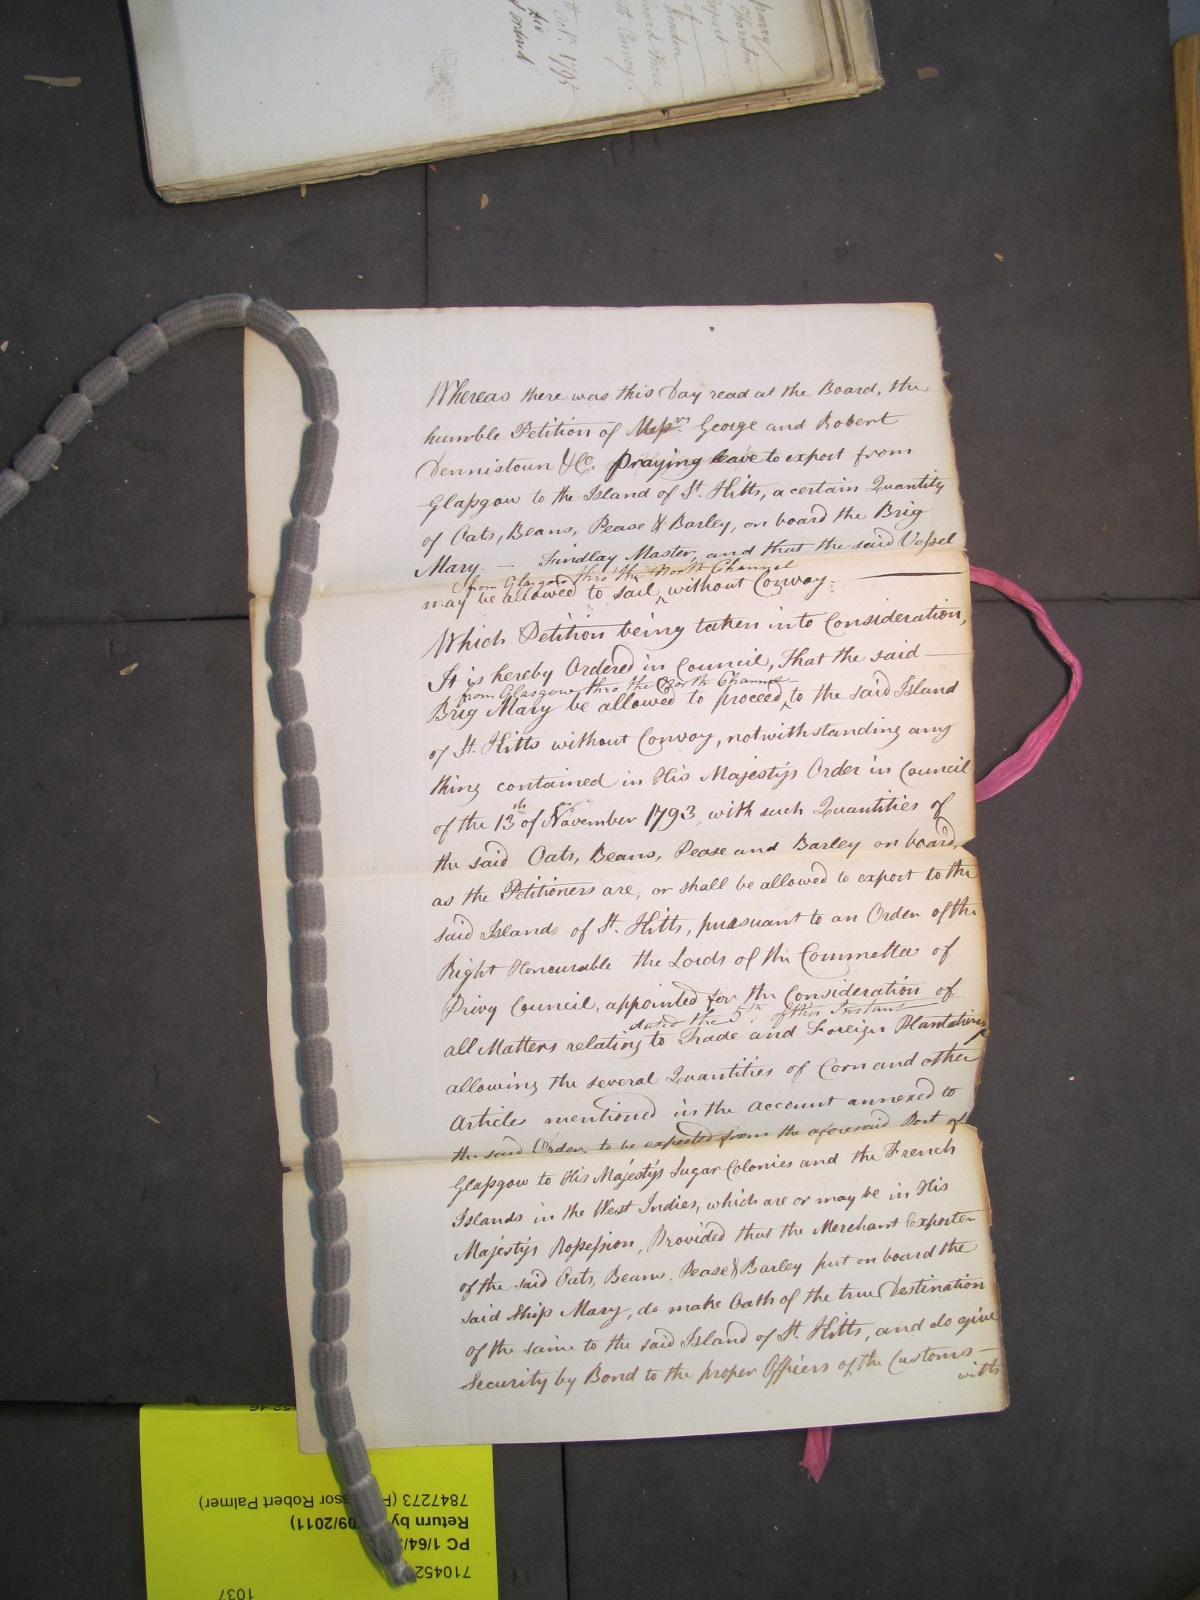 Whereas there was this Day read at the Board, the
humble Petition of Messrs. George and Robert
Dennistoun & Co. Praying leave to export from
Glasgow to the Island of St. Kitts, a certain Quantity
of Oats, Beans, Pease & Barley, on board the Brig
Mary — Findlay Master, and that the said Vessel
from Glasgow thro' the North Channel
may be allowed to sail ‸ without Convoy. —
Which Petition being taken into Consideration,
It is hereby Ordered in Council, That the said —
from Glasgow thro the North Channel
Brig Mary be allowed to proceed ‸ to the said Island
of St. Kitts without Convoy, notwithstanding any
thing contained in His Majesty's Order in Council
of the 13th of November 1793, with such Quantities of
the said Oats, Beans, Pease and Barley on board,
as the Petitioners are, or shall be allowed to export to the
said Islands of St. Kitts, pursuant to an Order of the
Right Honourable the Lords of the Committee of
Privy Council, appointed for the Consideration of
dated the 5th of this Instant
all Matters relating to Trade and Foreign Plantations
allowing the several Quantities of Corn and other
Articles mentioned in the Account annexed to
the said Order, to be exported from the aforesaid Port of
Glasgow to His Majesty's Sugar Colonies and the French
Islands in the West Indies, which are or may be in His
Majesty's Possession, Provided that the Merchant Exporter
of the said Oats, Beans, Pease & Barley put on board the
said Ship Mary, do make Oath of the true Destination
of the same to the said Island of St. Kitts, and do give
Security by Bond to the proper Officers of the Customs —
with
1037
710452
PC 1/64/
Return by 09/2011)
7847273 ( ssor Robert Palmer)